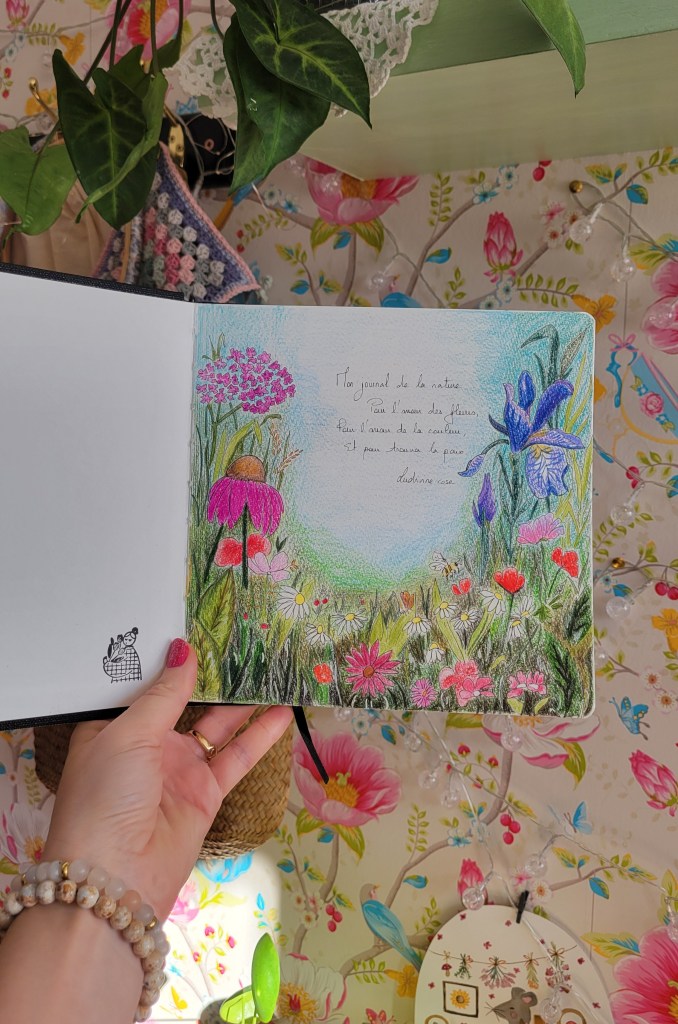 Mon journal de la nature.
Pour l'amour des fleurs,
Pour l'amour de la couleur,
Et pour trouver la paix